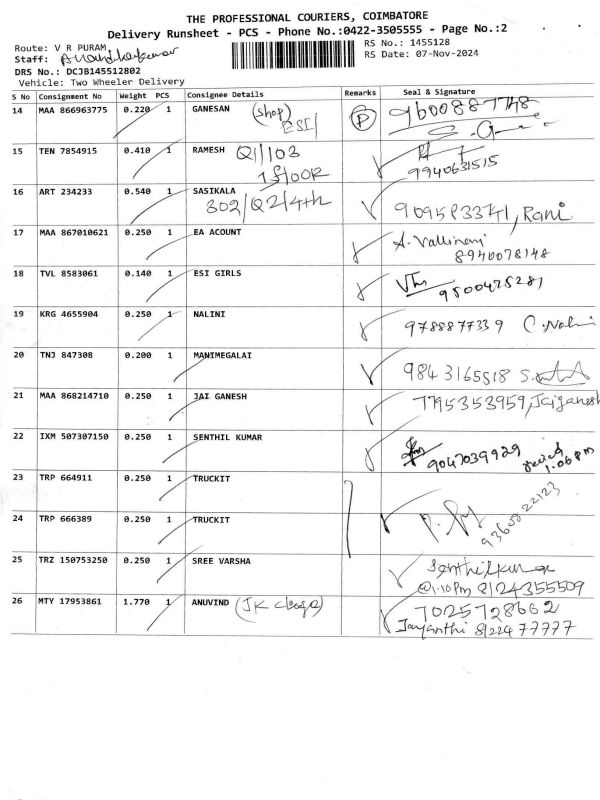 THE PROFESSIONAL COURIERS, COIMBATORE
Delivery Runsheet - PCS - Phone No.:0422-3505555 - Page No.:2
Route: V R PURAM
RS No.: 1455128
Staff:
RS Date: 07-Nov-2024
DRS No.: DCJB145512802
Vehicle: Two Wheeler Delivery
S No Consignment No Weight PCS Consignee Details Remarks Seal & Signature
14 MAA 866963775 0.220 1 GANESAN (Shop) P 9600887748
ESI
15 TEN 7854915 0.410 1 RAMESH Q1/103
1 floor 9940631515
16 ART 234233 0.540 1 SASIKALA
302/Q2/4th Rani
17 MAA 867010621 0.250 1 EA ACOUNT A. Vallinayi
8940078148
18 TVL 8583061 0.140 1 ESI GIRLS
9500475281
19 KRG 4655904 0.250 1 NALINI 9788877339 C. Nalini
20 TNJ 847308 0.200 1 MANIMEGALAI 9843165518
21 MAA 868214710 0.250 1 JAI GANESH 7795353959, Jaiganesh
22 IXM 507307150 0.250 1 SENTHIL KUMAR 9047039929
1.06 pm
23 TRP 664911 0.250 1 TRUCKIT
24 TRP 666389 0.250 1 TRUCKIT 93600 22123
25 TRZ 150753250 0.250 1 SREE VARSHA Senthilkumar
@1.10 Pm 8124355509
26 MTY 17953861 1.770 1 ANUVIND (JK 7025728662
Jayanthi 8122477777